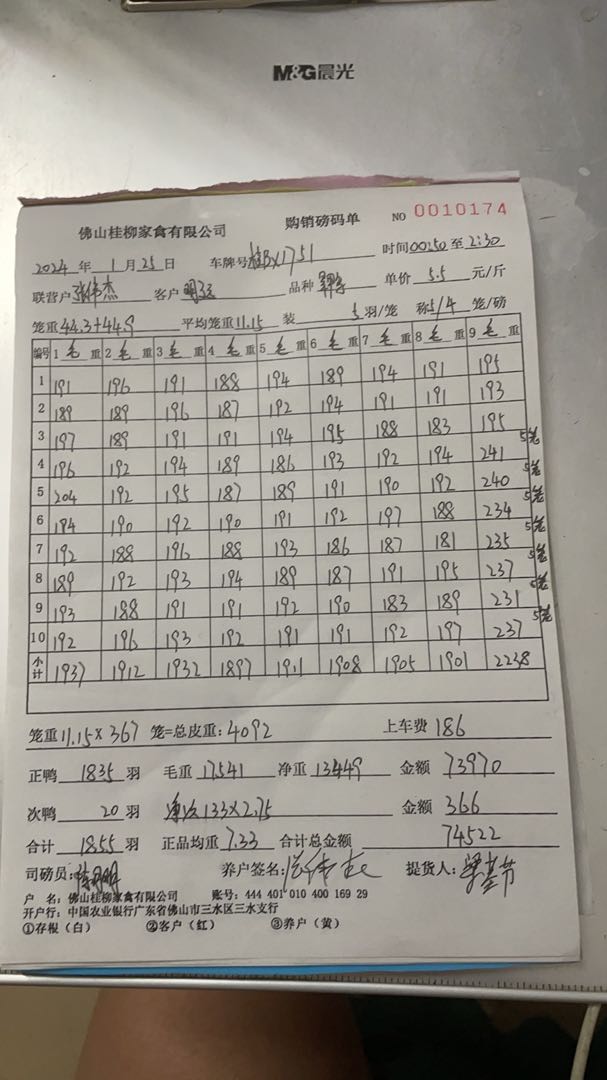 M&G晨光
佛山桂柳家禽有限公司 购销磅码单 NO 0010174
2024 年 1 月 25 日 车牌号 桂BX1751 时间 00:50 至 2:30
联营户 张伟杰 客户 品种 单价 5.5 元/斤
笼重 44.3+44.9 平均笼重 11.15 装 5 羽/笼 称 5/4 笼/磅
编号 1 毛 重 2 毛 重 3 毛 重 4 毛 重 5 毛 重 6 毛 重 7 毛 重 8 毛 重 9 毛 重
1 191 196 191 188 194 189 194 191 195
2 189 189 196 187 192 194 191 191 193
3 197 189 191 191 194 195 188 183 195
4 196 192 194 189 186 193 192 194 241 5笼
5 204 192 195 187 189 191 190 192 240 5笼
6 194 190 192 190 191 192 197 188 234 5笼
7 192 188 196 188 193 186 187 181 235 5笼
8 189 192 193 194 189 187 191 195 237 5笼
9 193 188 191 191 192 190 183 189 231 5笼
10 192 196 193 192 191 191 192 197 237 5笼
小计 1937 1912 1932 1897 1911 1908 1905 1901 2238
笼重 11.15 × 367 笼=总皮重: 4092 上车费 186
正鸭 1835 羽 毛重 17541 净重 13449 金额 73970
次鸭 20 羽 133×2.75 金额 366
合计 1855 羽 正品均重 7.33 合计总金额 74522
司磅员: 养户签名: 提货人:
户 名: 佛山桂柳家禽有限公司 账号: 444 401 010 400 169 29
开户行: 中国农业银行广东省佛山市三水区三水支行
①存根（白） ②客户（红） ③养户（黄）